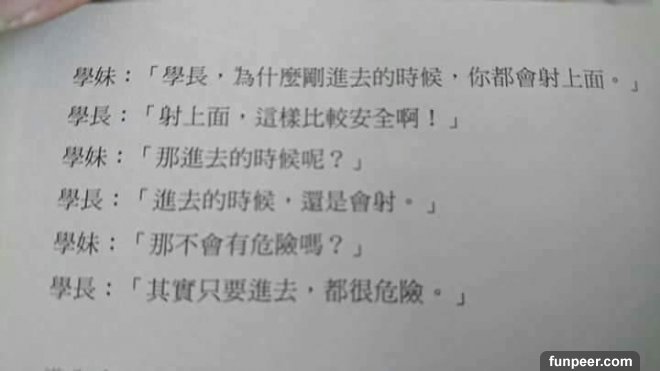 學妹：「學長，為什麼剛進去的時候，你都會射上面。」
學長：「射上面，這樣比較安全啊！」
學妹：「那進去的時候呢？」
學長：「進去的時候，還是會射。」
學妹：「那不會有危險嗎？」
學長：「其實只要進去，都很危險。」
funpeer.com